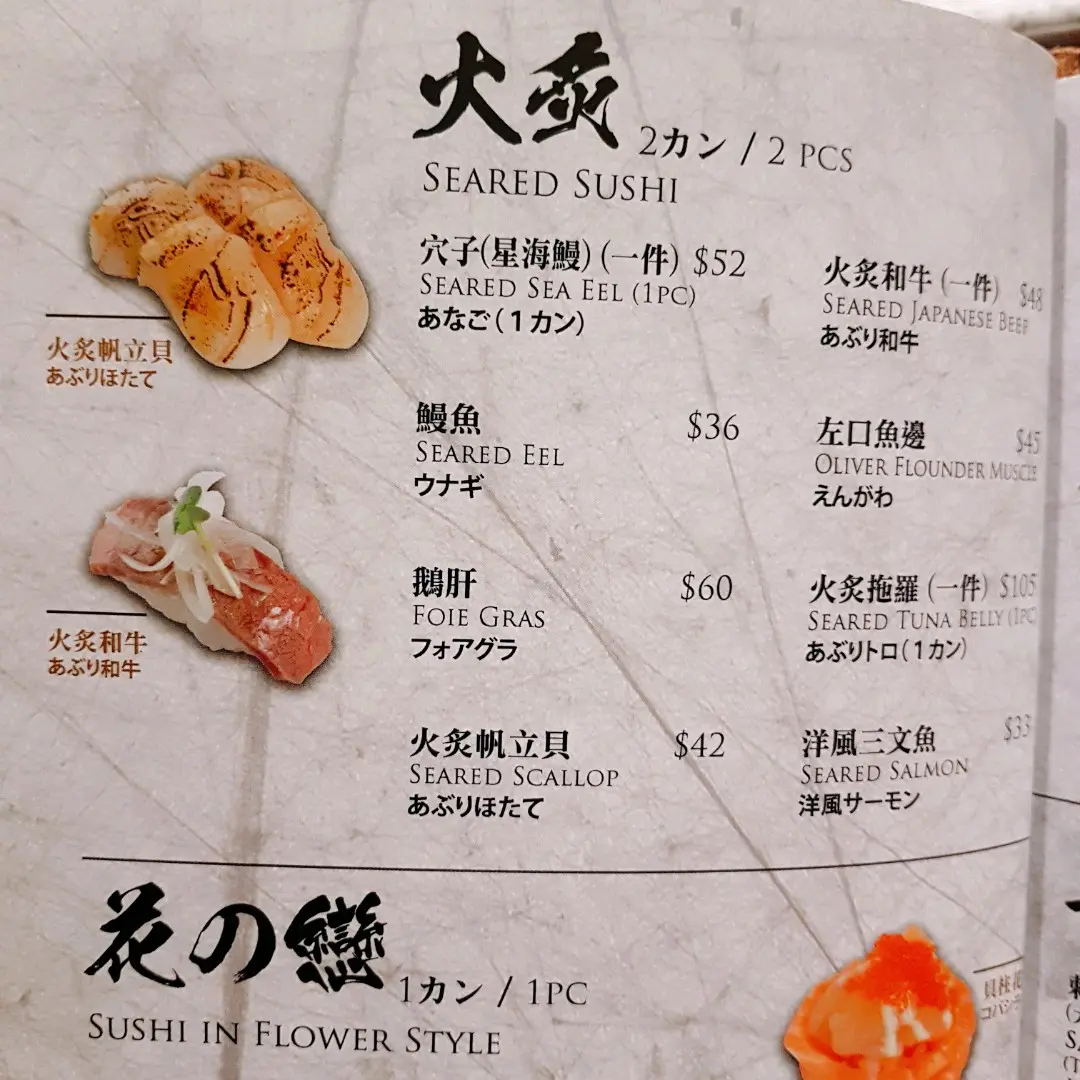 火炙 2カン / 2 PCS
SEARED SUSHI
火炙帆立貝
あぶりほたて
火炙和牛
あぶり和牛
穴子(星海鰻) (一件) $52
SEARED SEA EEL (1PC)
あなご(1カン)
鰻魚 $36
SEARED EEL
ウナギ
鵝肝 $60
FOIE GRAS
フォアグラ
火炙帆立貝 $42
SEARED SCALLOP
あぶりほたて
火炙和牛 (一件) $48
SEARED JAPANESE BEEF
あぶり和牛
左口魚邊 $45
OLIVER FLOUNDER MUSCLE
えんがわ
火炙拖羅 (一件) $105
SEARED TUNA BELLY (1PC
あぶりトロ(1カン)
洋風三文魚 $33
SEARED SALMON
洋風サーモン
花の戀 1カン / 1PC
SUSHI IN FLOWER STYLE
貝柱花
コバシラ